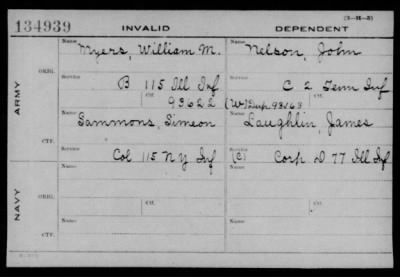 134939
INVALID
DEPENDENT
(3-H-3)
Name
Myers, William M.
Name
Nelson, John
ARMY
ORIG.
Service
B 115 Ill Inf
Service
C 2 Tenn Inf
Ctf.
93622
Ctf.
(W)
CTF.
Name
Sammons, Simeon
Name
Laughlin, James
Service
Col 115 N Y Inf
Service
(C) Corp D 77 Ill Inf
NAVY
ORIG.
Name
Name
Service
Service
Ctf.
Ctf.
CTF.
Name
Name